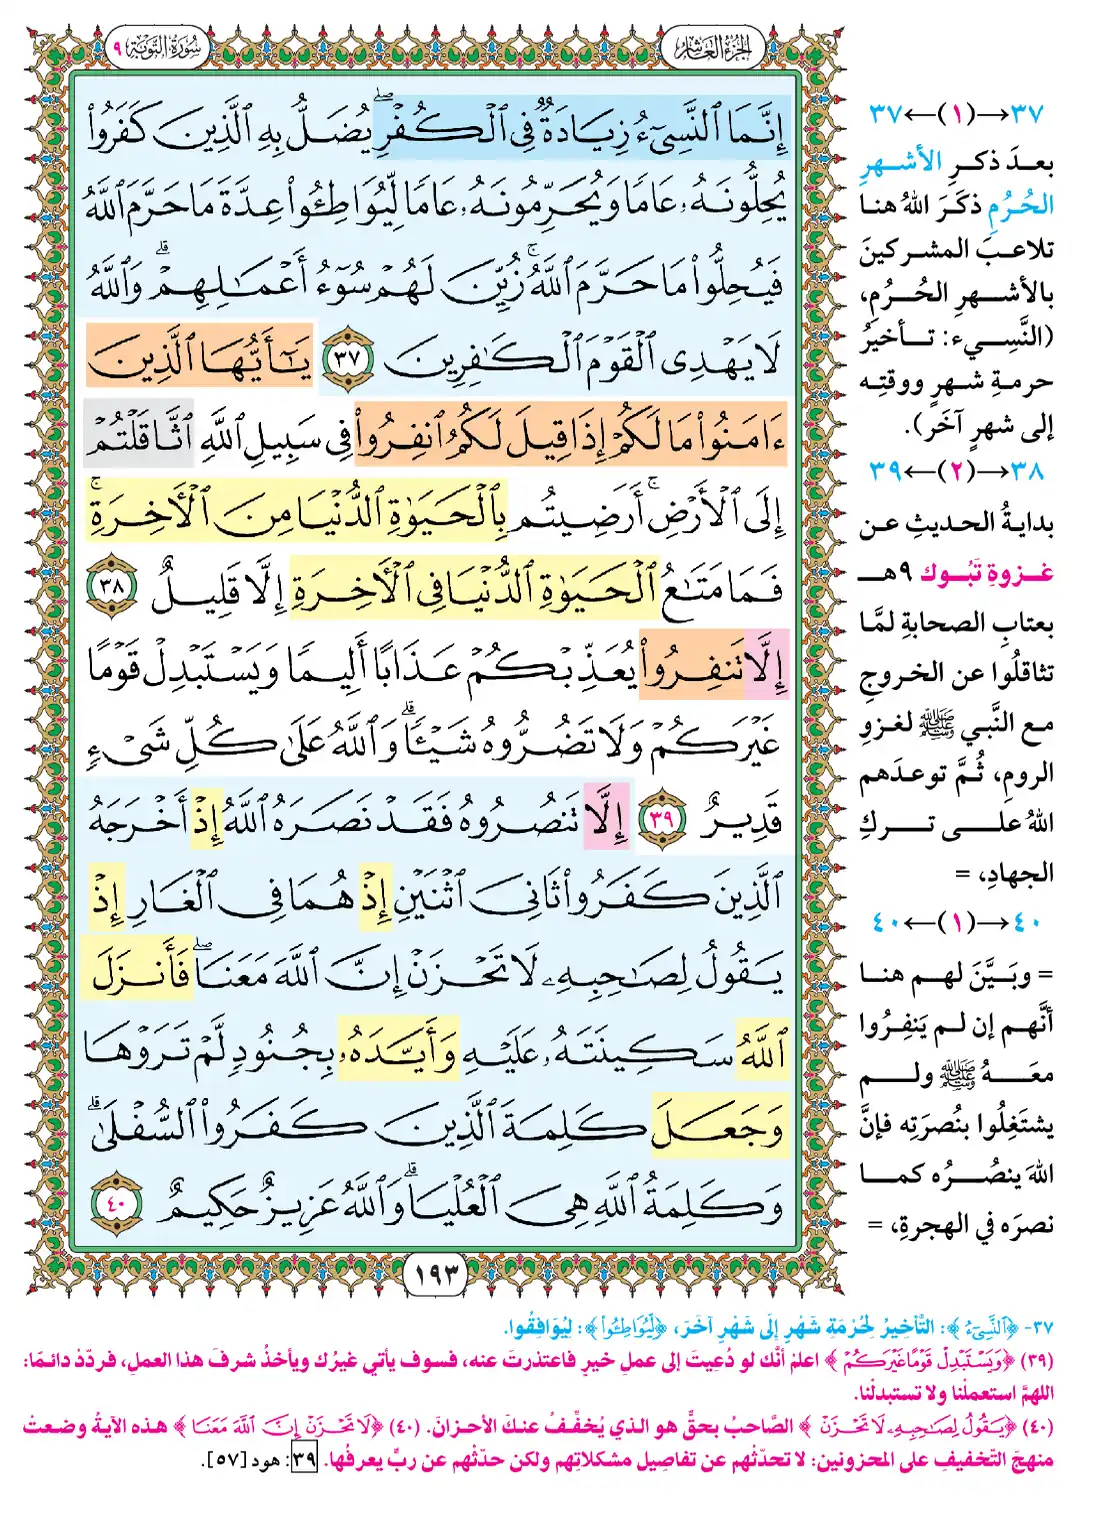 الجزء العاشر
سورة التوبة ٩
إِنَّمَا ٱلنَّسِيٓءُ زِيَادَةٌ فِى ٱلْكُفْرِ ۖ يُضَلُّ بِهِ ٱلَّذِينَ كَفَرُوا۟
يُحِلُّونَهُۥ عَامًا وَيُحَرِّمُونَهُۥ عَامًا لِّيُوَاطِـُٔوا۟ عِدَّةَ مَا حَرَّمَ ٱللَّهُ
فَيُحِلُّوا۟ مَا حَرَّمَ ٱللَّهُ ۚ زُيِّنَ لَهُمْ سُوٓءُ أَعْمَـٰلِهِمْ ۗ وَٱللَّهُ
لَا يَهْدِى ٱلْقَوْمَ ٱلْكَـٰفِرِينَ ٣٧ يَـٰٓأَيُّهَا ٱلَّذِينَ
ءَامَنُوا۟ مَا لَكُمْ إِذَا قِيلَ لَكُمُ ٱنفِرُوا۟ فِى سَبِيلِ ٱللَّهِ ٱثَّاقَلْتُمْ
إِلَى ٱلْأَرْضِ ۚ أَرَضِيتُم بِٱلْحَيَوٰةِ ٱلدُّنْيَا مِنَ ٱلْـَٔاخِرَةِ ۚ
فَمَا مَتَـٰعُ ٱلْحَيَوٰةِ ٱلدُّنْيَا فِى ٱلْـَٔاخِرَةِ إِلَّا قَلِيلٌ ٣٨
إِلَّا تَنفِرُوا۟ يُعَذِّبْكُمْ عَذَابًا أَلِيمًا وَيَسْتَبْدِلْ قَوْمًا
غَيْرَكُمْ وَلَا تَضُرُّوهُ شَيْـًٔا ۗ وَٱللَّهُ عَلَىٰ كُلِّ شَىْءٍ
قَدِيرٌ ٣٩ إِلَّا تَنصُرُوهُ فَقَدْ نَصَرَهُ ٱللَّهُ إِذْ أَخْرَجَهُ
ٱلَّذِينَ كَفَرُوا۟ ثَانِىَ ٱثْنَيْنِ إِذْ هُمَا فِى ٱلْغَارِ إِذْ
يَقُولُ لِصَـٰحِبِهِۦ لَا تَحْزَنْ إِنَّ ٱللَّهَ مَعَنَا ۖ فَأَنزَلَ
ٱللَّهُ سَكِينَتَهُۥ عَلَيْهِ وَأَيَّدَهُۥ بِجُنُودٍ لَّمْ تَرَوْهَا
وَجَعَلَ كَلِمَةَ ٱلَّذِينَ كَفَرُوا۟ ٱلسُّفْلَىٰ ۗ
وَكَلِمَةُ ٱللَّهِ هِىَ ٱلْعُلْيَا ۗ وَٱللَّهُ عَزِيزٌ حَكِيمٌ ٤٠
١٩٣
٣٧→(١)←٣٧
بعدَ ذكرِ الأشهرِ
الحُرُمِ ذكَرَ اللهُ هنا
تلاعبَ المشركينَ
بالأشهرِ الحُرُمِ،
(النَّسِيء: تأخيرُ
حرمةِ شهرٍ ووقتِه
إلى شهرٍ آخَر).
٣٨→(٢)←٣٩
بدايةُ الحديثِ عن
غزوةِ تَبُوك ٩هـ
بعتابِ الصحابةِ لمَّا
تثاقلُوا عن الخروجِ
مع النَّبي ﷺ لغزوِ
الرومِ، ثُمَّ توعدَهم
اللهُ على تركِ
الجهادِ، =
٤٠→(١)←٤٠
= وبَيَّنَ لهم هنا
أنَّهم إن لم يَنفِرُوا
معَهُ ﷺ ولم
يشتَغِلُوا بنُصرَتِه فإنَّ
اللهَ ينصُرُه كما
نصرَه في الهجرةِ، =
٣٧- ﴿ٱلنَّسِيٓءُ﴾: التَّأْخِيرُ لِحُرْمَةِ شَهْرٍ إِلَى شَهْرٍ آخَرَ، ﴿لِّيُوَاطِـُٔوا۟﴾: لِيُوَافِقُوا.
(٣٩) ﴿وَيَسْتَبْدِلْ قَوْمًا غَيْرَكُمْ﴾ اعلمْ أنَّك لو دُعِيتَ إلى عملِ خيرٍ فاعتذرتَ عنه، فسوف يأتي غيرُك ويأخذُ شرفَ هذا العملِ، فردِّدْ دائمًا:
اللهمَّ استعملْنا ولا تستبدلْنا.
(٤٠) ﴿يَقُولُ لِصَـٰحِبِهِۦ لَا تَحْزَنْ﴾ الصَّاحبُ بحقٍّ هو الذي يُخفِّفُ عنكَ الأحزانَ. (٤٠) ﴿لَا تَحْزَنْ إِنَّ ٱللَّهَ مَعَنَا﴾ هذه الآيةُ وضعتْ
منهجَ التَّخفيفِ على المحزونين: لا تحدِّثْهم عن تفاصيلِ مشكلاتِهم ولكن حدِّثْهم عن ربٍّ يعرفُها. ٣٩: هود [٥٧].